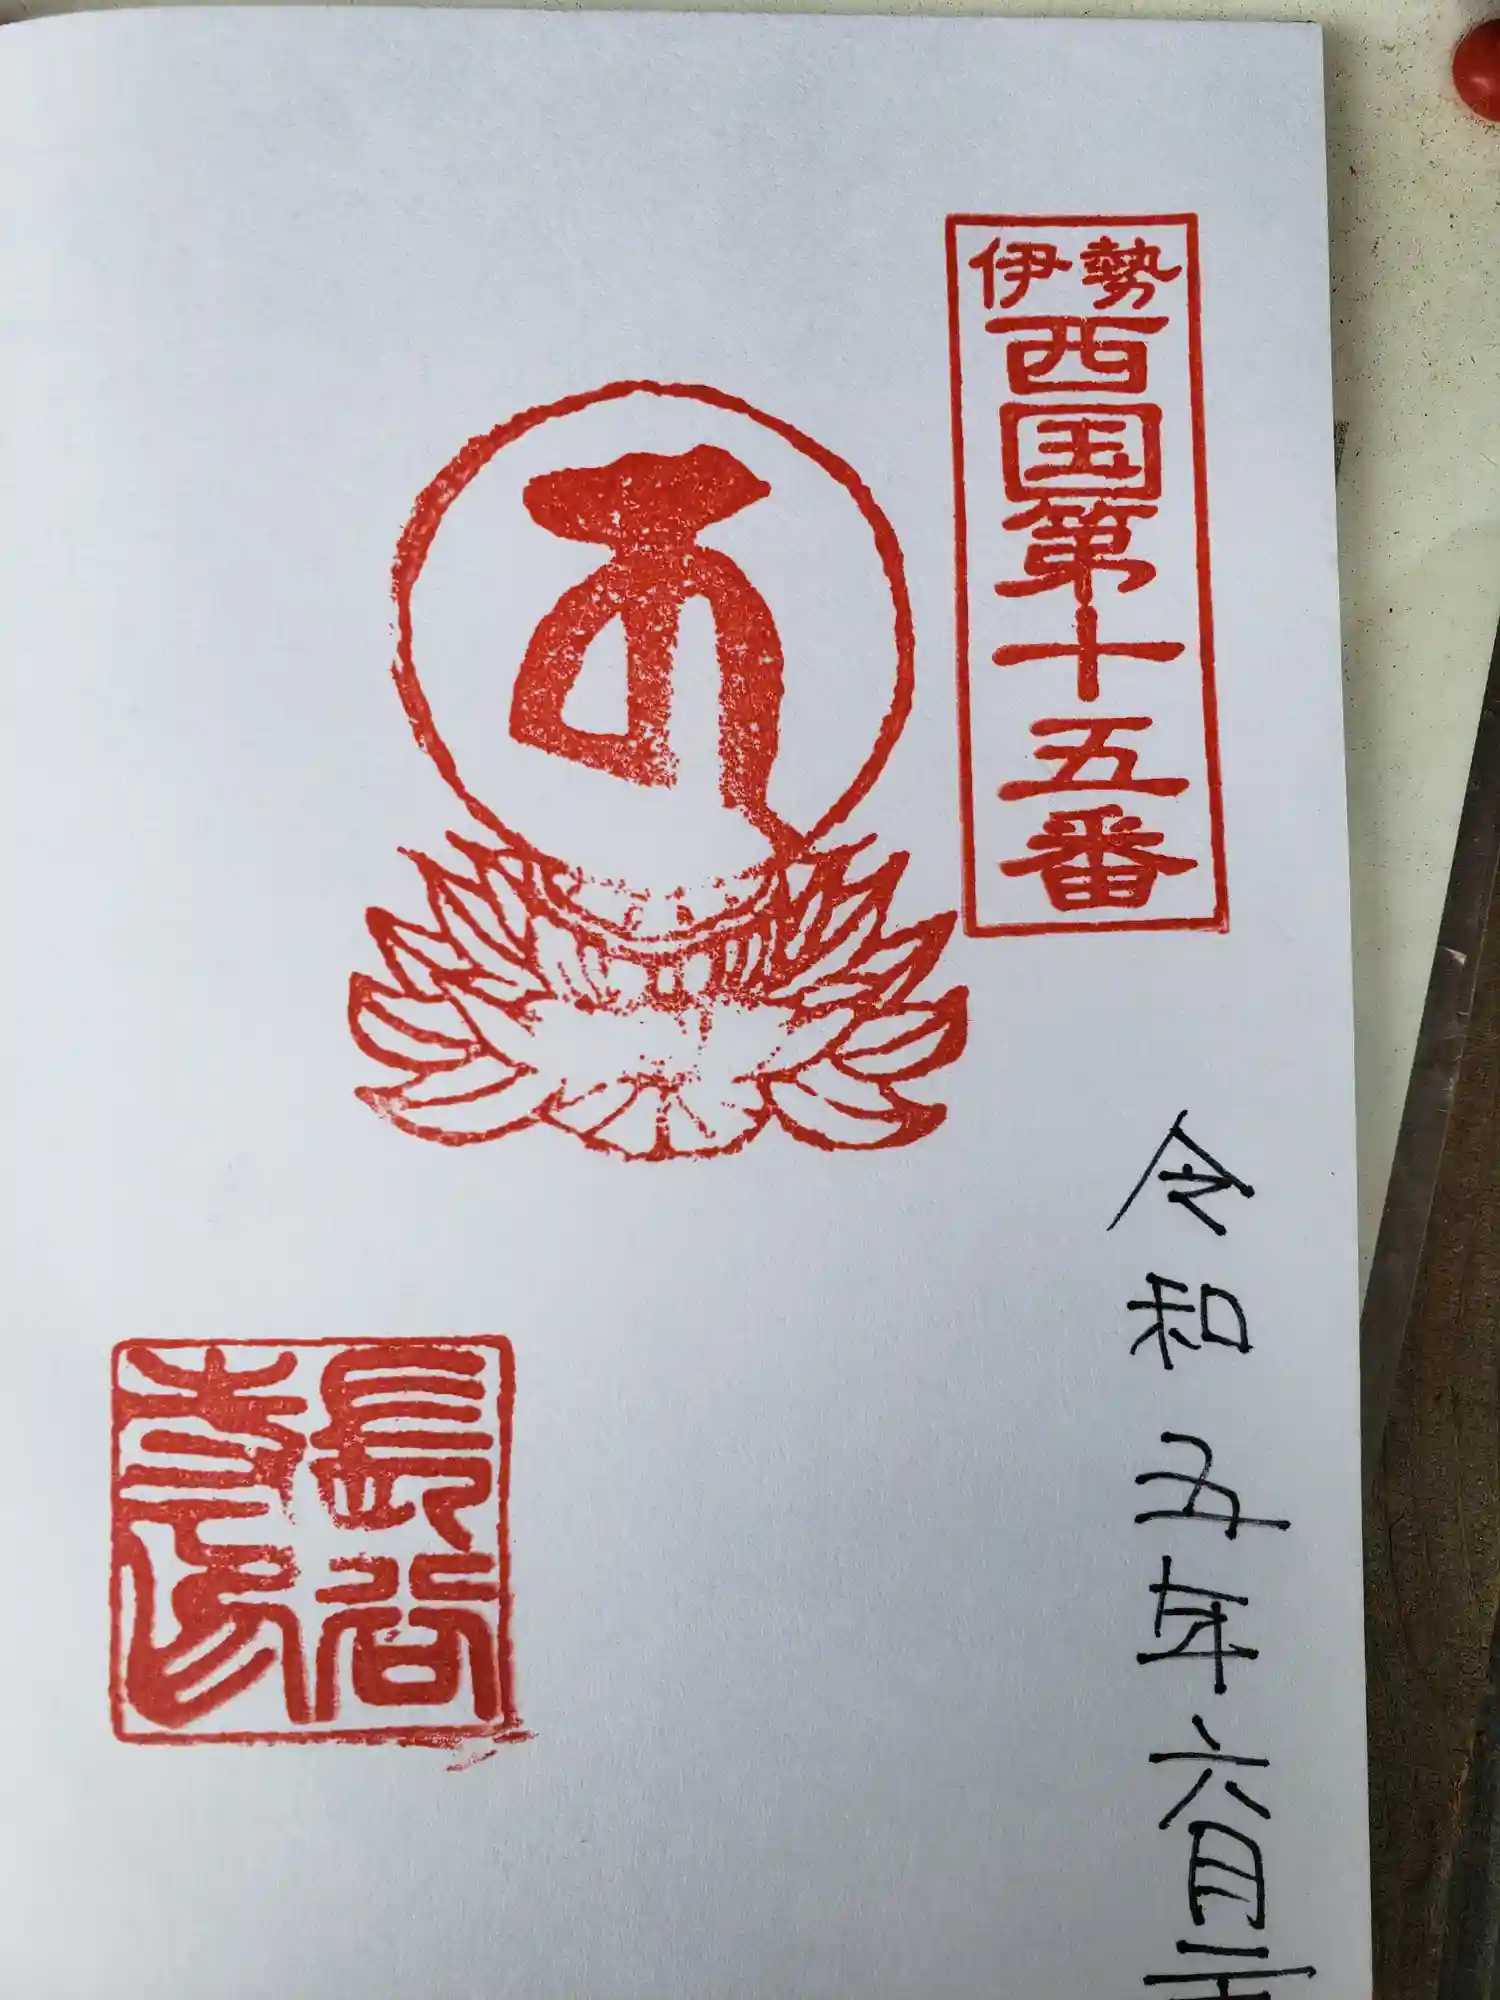 伊勢
西国第十五番
令和五年六月
長谷
寺印